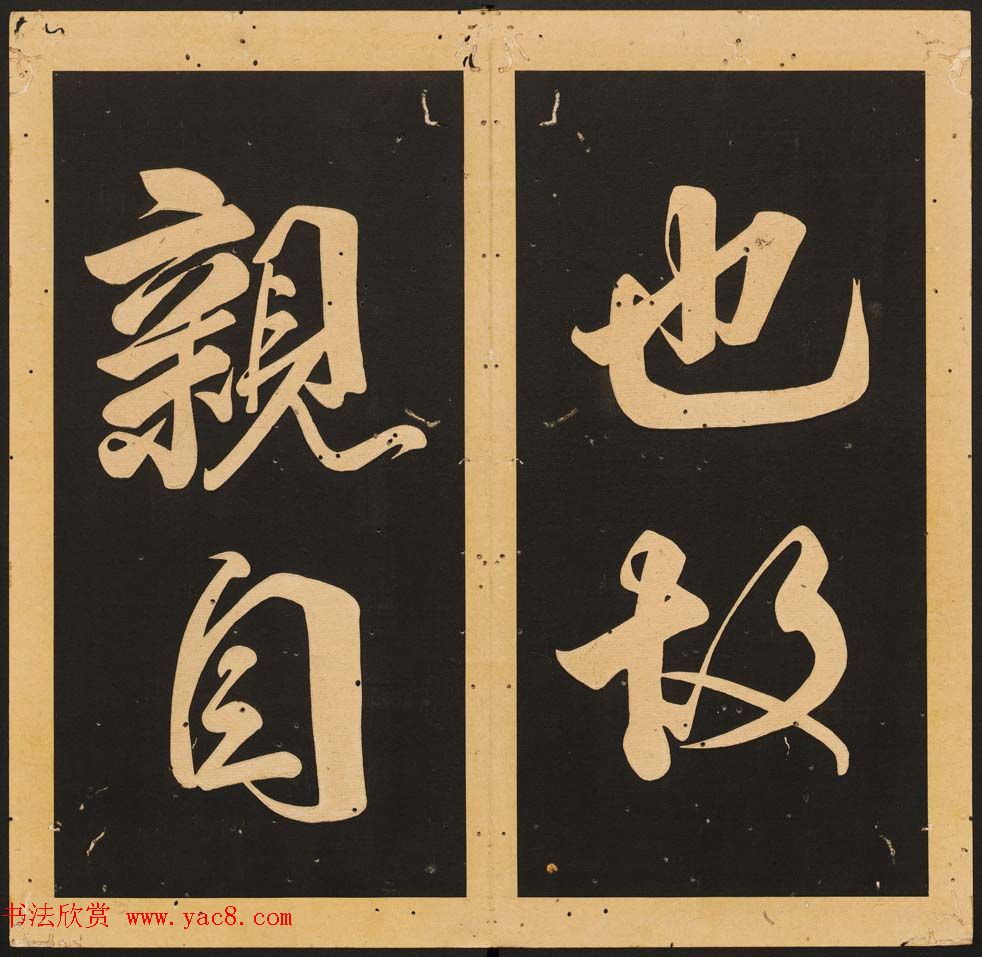 也故
親自
书法欣赏 www.yac8.com